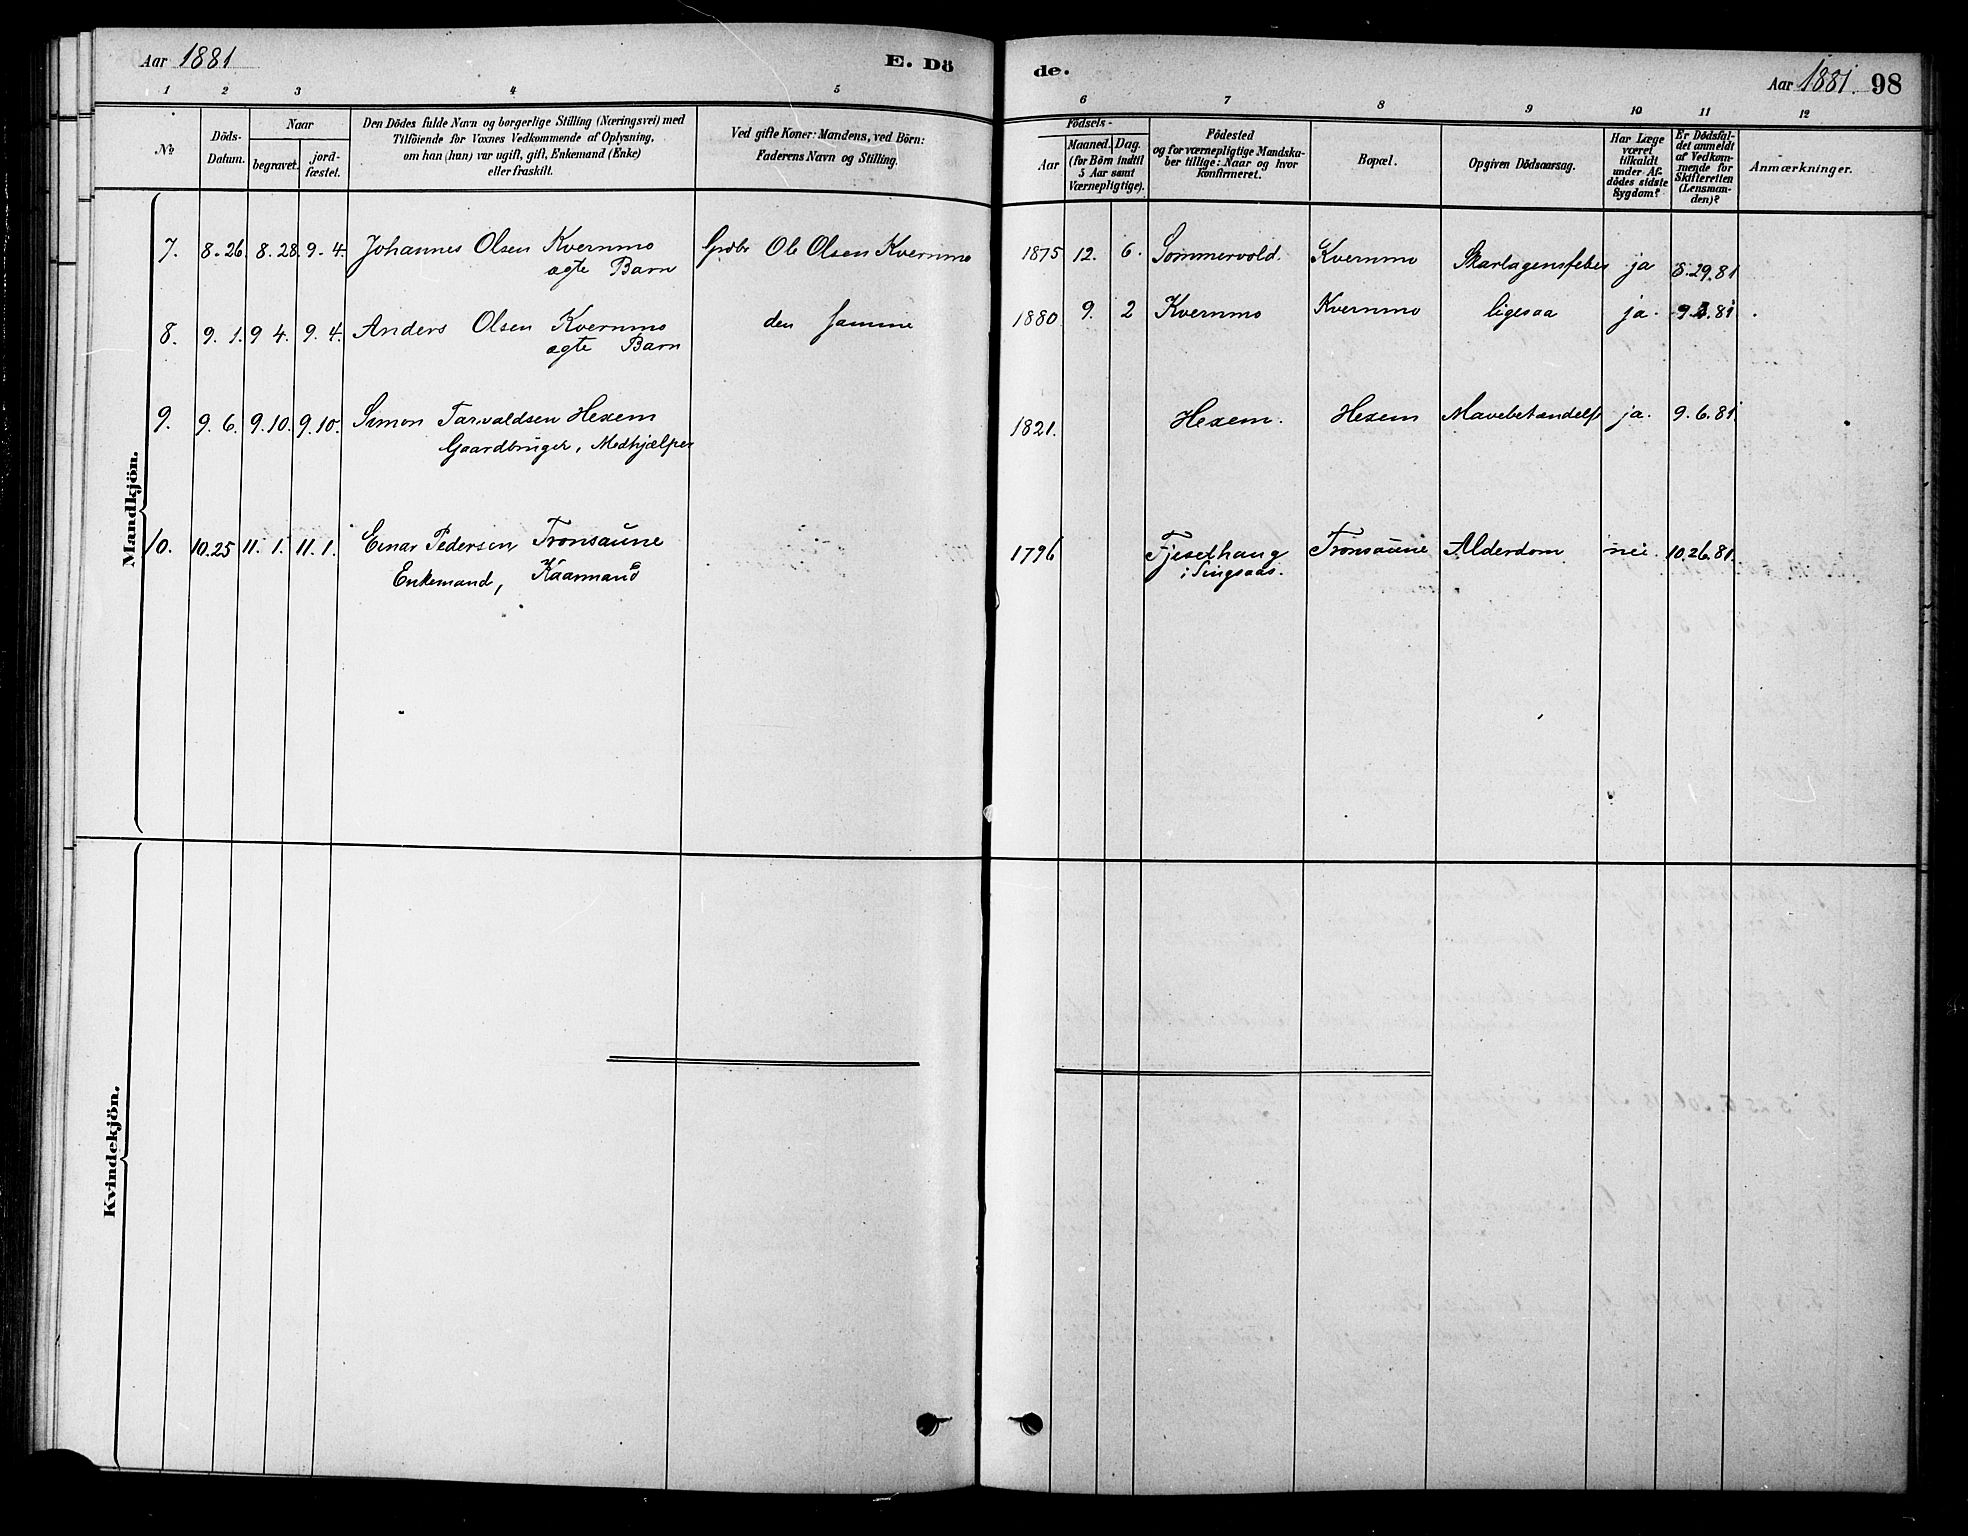 Aar 1881 E. Dö
1 2 3 4 5
№ Döds-Datum. Naar begravet. jord-fæstet.
Den Dödes fulde Navn og borgerlige Stilling (Næringsvei) med
Tilföiende for Voxnes Vedkommende af Oplysning,
om han (hun) var ugift, gift, Enkemand (Enke)
eller fraskilt.
Ved gifte Koner: Mandens, ved Börn:
Faderens Navn og Stilling.
Mandkjön.
7. 8.26. 8.28. 9.4. Johannes Olsen Kvernmo Grdbr Ole Olsen Kvernmo
ægte Barn
8. 9.1. 9 4. 9.4. Anders Olsen Kvernmo den samme
ægte Barn
9. 9.6. 9.10. 9.10. Simon Tarvaldsen Hexem
Gaardbruger, Medhjælper
10. 10.25 11.1. 11.1. Einar Pedersen Tronsaune
Enkemand, Kaarmand
Kvindekjön.
de. Aar 1881. 98
6 7 8 9 10 11 12
Födsels-
Aar
Maaned. Dag.
(for Börn indtil
5 Aar samt
Værnepligtige).
Födested
og for værnepligtige Mandska-
ber tillige: Naar og hvor
Konfirmeret.
Bopæl.
Opgiven Dödsaarsag.
Har Læge
været
tilkaldt
under Af-
dödes sidste
Sygdom?
Er Dödsfal-
det anmeldt
af Vedkom-
mende for
Skifteretten
(Lensman-
den)?
Anmærkninger.
1875 12. 6. Sommervold. Kvernmo Skarlagensfeber ja 8.29.81
1880 9. 2 Kvernmo Kvernmo ligesaa ja. 9.3.81
1821. Hexem. Hexem Mavebetændelse ja. 9.6.81
1796 Fjeselhaug Tronsaune Alderdom nei. 10.26.81.
i Singsaas.